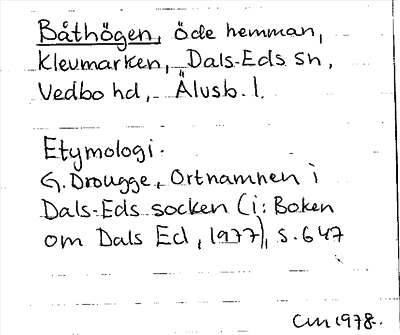 Båthögen, öde hemman,
Klevmarken, Dals-Eds sn,
Vedbo hd, Älvsb. l.
Etymologi.
G. Drougge, Ortnamnen i
Dals-Eds socken (i: Boken
om Dals Ed, 1977), s. 647
CM 1978.